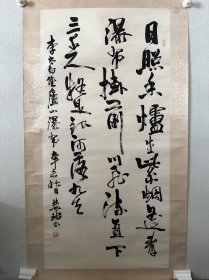 日照香爐生紫烟遥看
瀑布掛前川飛流直下
三千尺疑是銀河落九天
李太白望廬山瀑布